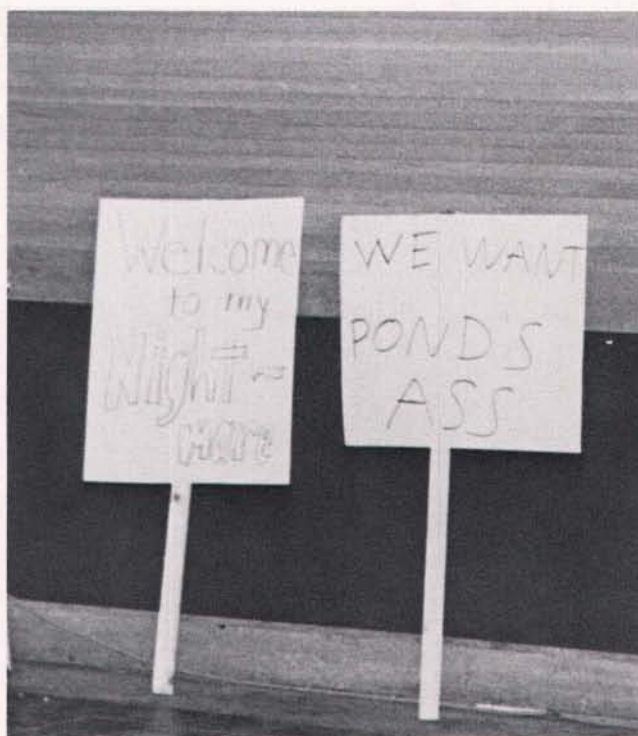 Welcome
to my
Night-
mare
WE WANT
POND'S
ASS